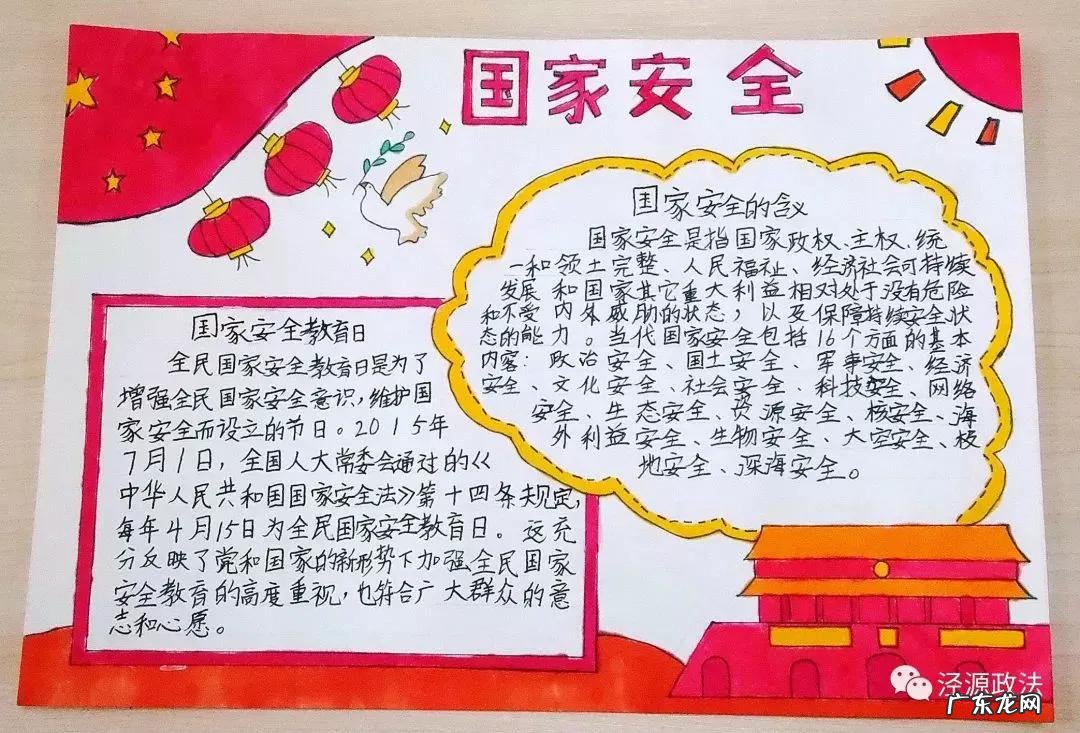 国家安全
国家安全的含义
国家安全是指国家政权、主权、统
一和领土完整、人民福祉、经济社会可持续
发展和国家其它重大利益相对处于没有危险
和不受内外威胁的状态，以及保障持续安全状
态的能力。当代国家安全包括16个方面的基本
内容：政治安全、国土安全、军事安全、经济
安全、文化安全、社会安全、科技安全、网络
安全、生态安全、资源安全、核安全、海
外利益安全、生物安全、太空安全、极
地安全、深海安全。
国家安全教育日
全民国家安全教育日是为了
增强全民国家安全意识，维护国
家安全而设立的节日。2015年
7月1日，全国人大常委会通过的《
中华人民共和国国家安全法》第十四条规定，
每年4月15日为全民国家安全教育日。这充
分反映了党和国家的新形势下加强全民国家
安全教育的高度重视，也符合广大群众的意
志和心愿。
泾源政法
广东龙网